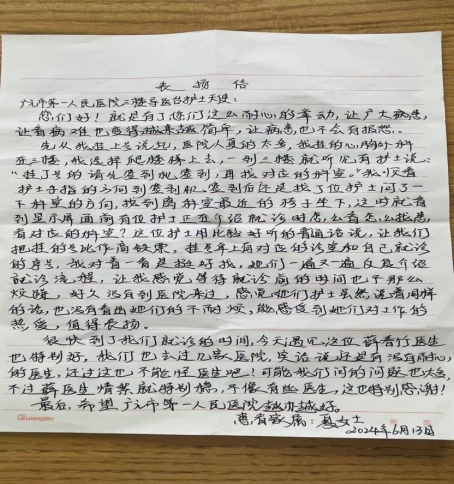 表扬信
广元市第一人民医院三楼导医台护士天使:
您们好！就是有了你们这么耐心的举动，让广大病患，
让看病难也变得越来越简单，让病患也不会有抱怨。
先从我挂上号说起，医院人真的太多，我挂的心胸外科
在三楼，我选择爬楼梯上去，一到三楼就听见有护士说：
"挂了号的请先签到机签到，再找对应的科室。"我顺着
护士手指的方向到签到机签到后还是找了位护士问了一
下科室的方向，找到离科室最近的椅子坐下，这时就看
到显示屏画面前有位护士正在介绍就诊时怎么看怎么找患
者对应的科室？这位护士用比较好听的普通话说，让我们
把挂的号比作高铁票，挂号单上有对应的诊室和自己就诊
的序号，我对着一看是挺好找，她们一遍又一遍反复介绍
就诊流程，让我感觉等待就诊前的时间也不那么
烦躁，好久没有到医院来过，感觉她们护士虽然说着同样
的话，也没有看出她们的不耐烦，能感受到她们对工作的
热爱，值得表扬。
很快到了我们就诊的时间，今天遇见这位薛青竹医生
也特别好，我们也去过几家医院，实话说还是有没有耐心
的医生，还过这也不能怪医生吧！可能我们问的问题也太多，
不过薛医生情绪就特别稳，不像有些医生，这也特别感谢！
最后，希望广元市第一人民医院越办越好。
患者家属：女士
2024年6月13日